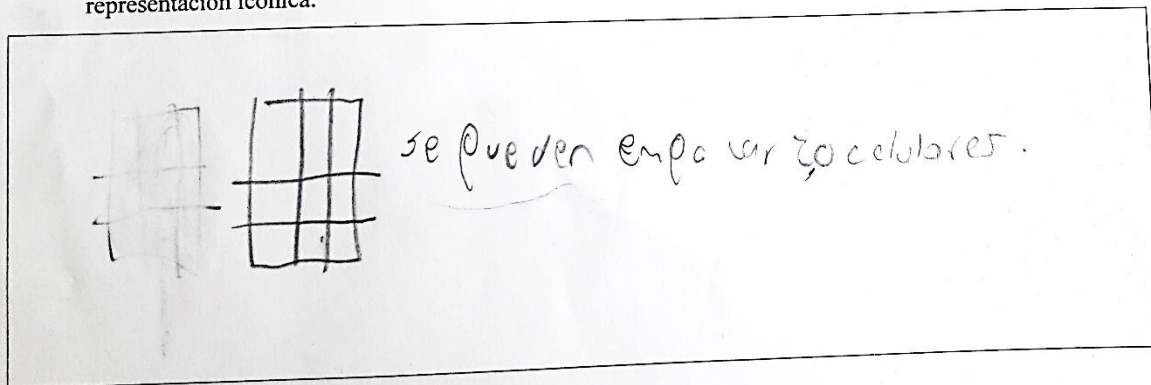 representación icónica.
se pueden empacar 20 celulares.